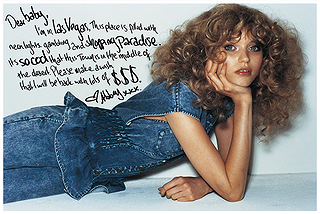 Dear baby,
I'm in Las Vegas. This place is filled with
neon lights, gambling and shopping Paradise.
its so cool that this Town is in the middle of
the desert. Please make a wish
that I will be back with lots of $$$.
xxx.